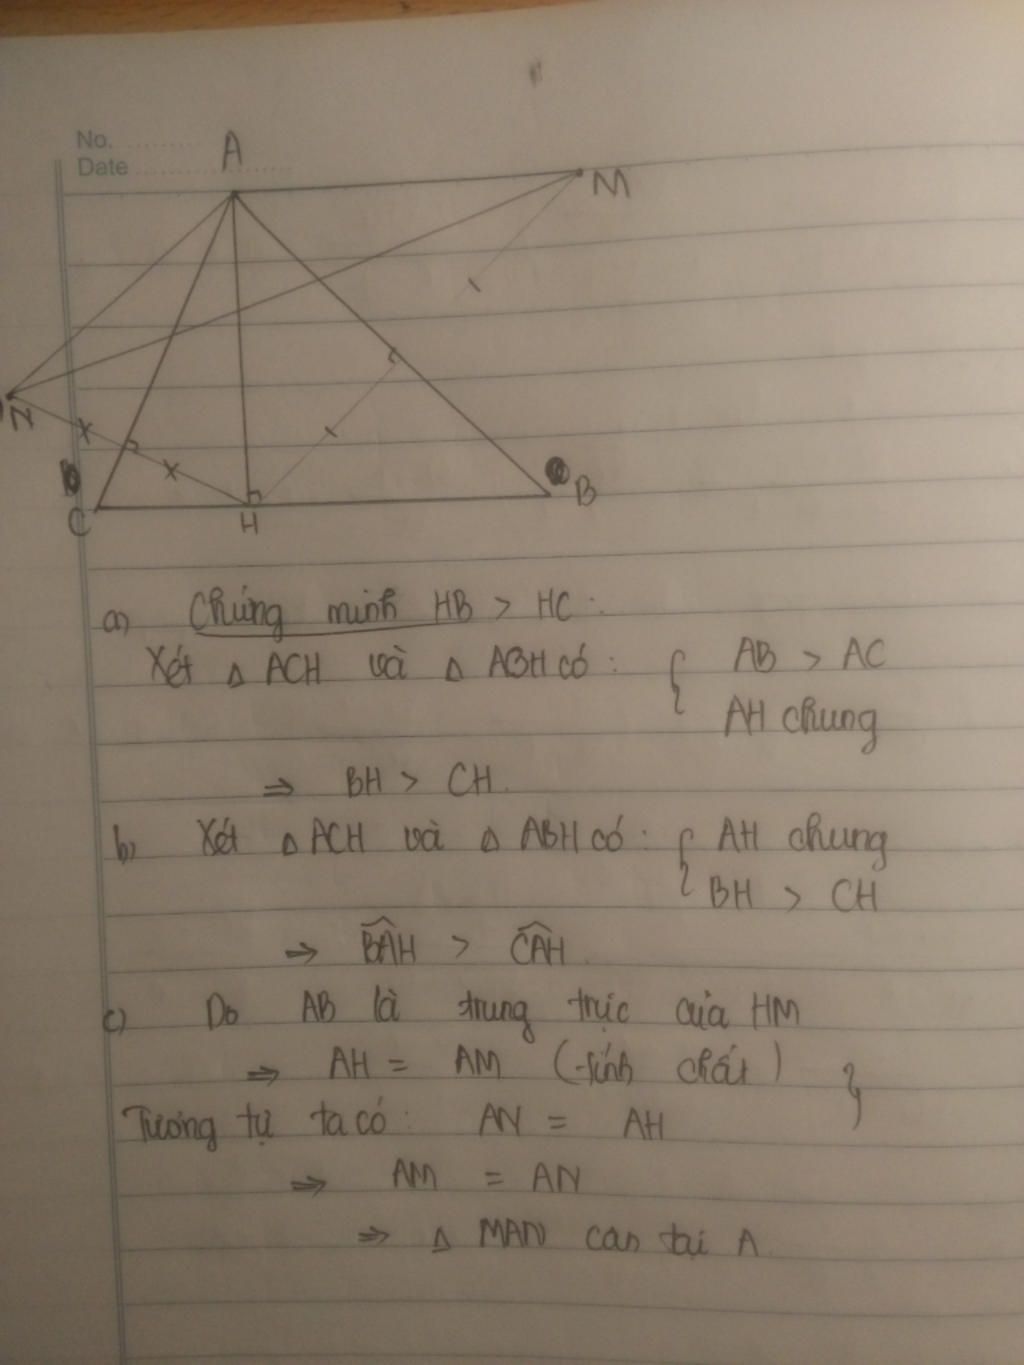 No. ............
Date ......................
A
M
N
C
H
B
a) Chứng minh HB > HC :
Xét Δ ACH và Δ ABH có : { AB > AC
AH chung
⇒ BH > CH.
b) Xét Δ ACH và Δ ABH có : { AH chung
BH > CH
⇒ BAH > CAH.
c) Do AB là trung trực của HM
⇒ AH = AM (tính chất) }
Tương tự ta có : AN = AH
⇒ AM = AN
⇒ Δ MAN cân tại A.